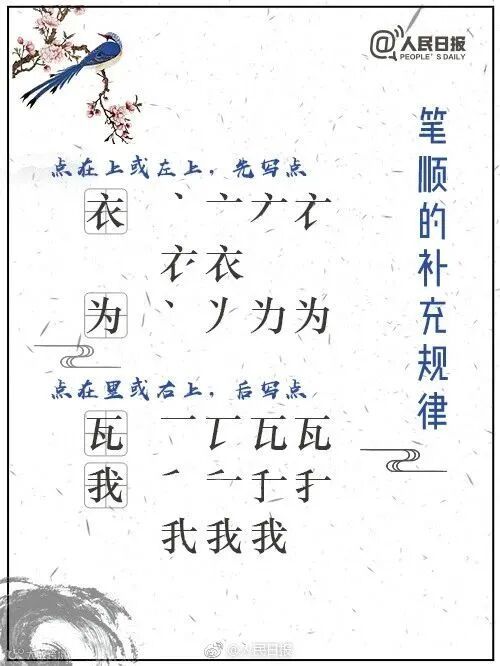 @人民日报
PEOPLE'S DAILY
笔顺的补充规律
点在上或左上，先写点
衣 丶 亠 ナ 𧘇
衣 衣
为 丶 ソ 为 为
点在里或右上，后写点
瓦 一 瓦 瓦
我 丿 二 于 扌
我 我 我
@人民日报